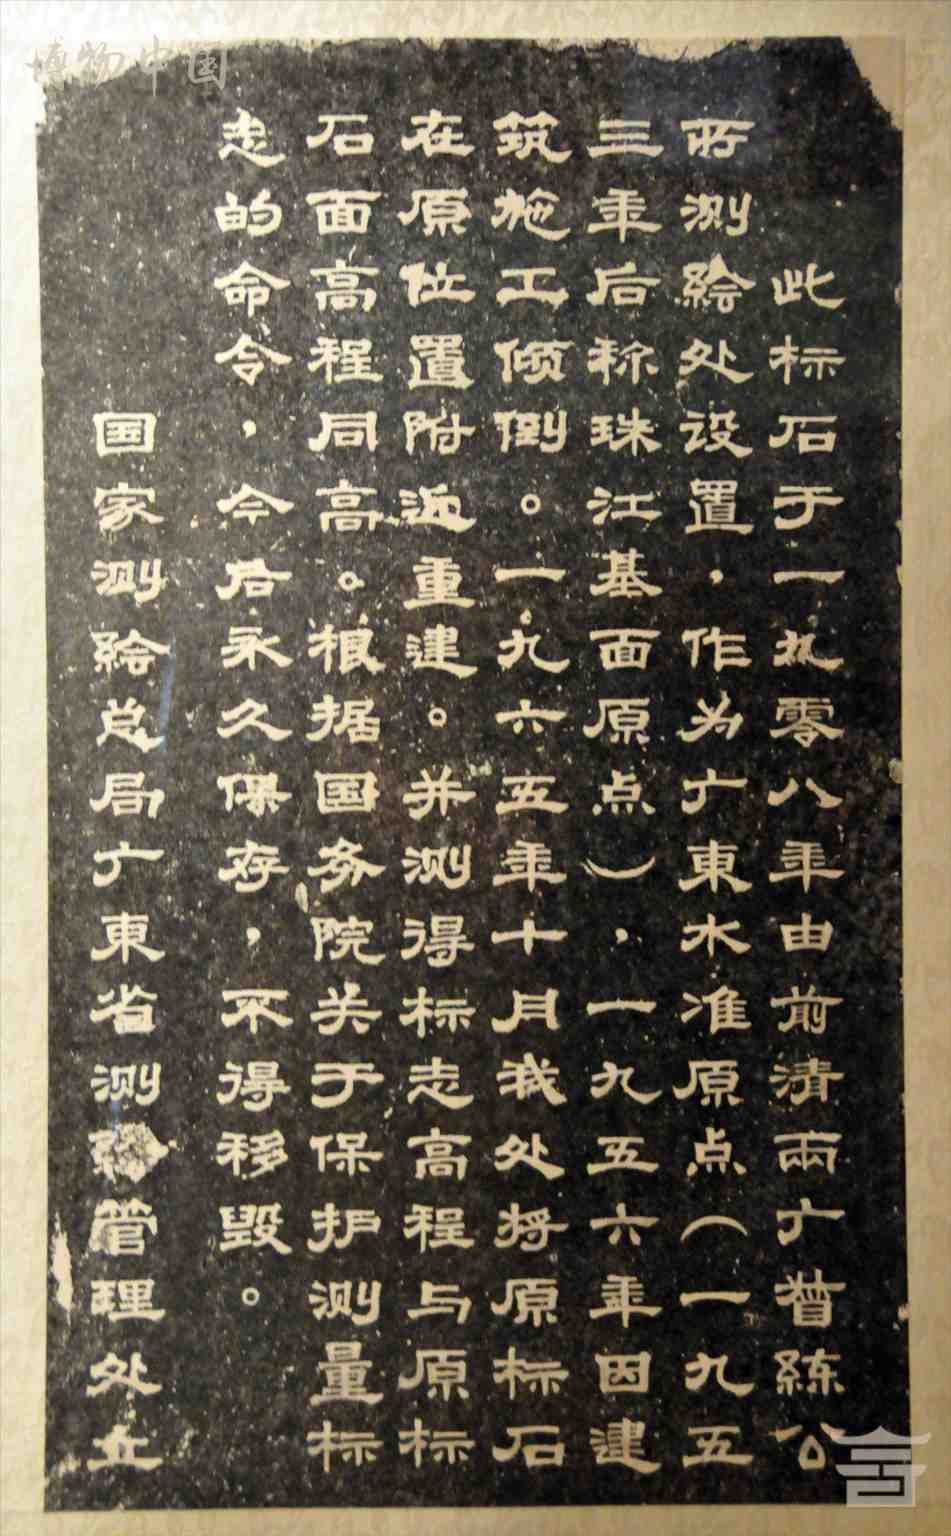 博物中国
此标石于一九零八年由前清兩广督練公
所测绘处设置，作为广東水准原点（一九五
三年后称珠江基面原点），一九五六年因建
筑施工倾倒。一九六五年十月我处将原标石
在原位置附近重建。并测得标志高程与原标
石面高程同高。根据国务院关于保护测量标
志的命令，今后永久保存，不得移毁。
国家测绘总局广東省测绘管理处立